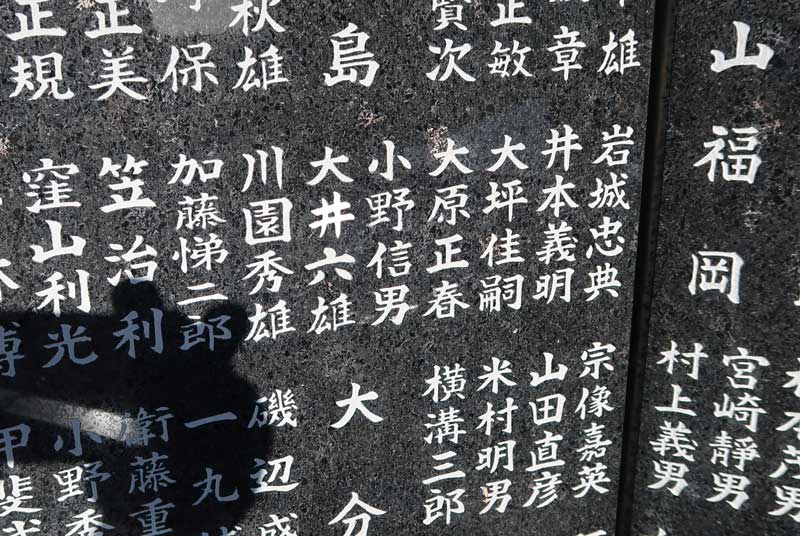 山
福岡
宮崎靜男
村上義男
雄
章
正敏
賢次
島
秋雄
保
正美
正規
岩城忠典
井本義明
大坪佳嗣
大原正春
小野信男
大井六雄
川園秀雄
加藤悌二郎
笠治利
窪山利光
博
宗像嘉英
山田直彦
米村明男
横溝三郎
大分
磯辺盛
一丸
衛藤重
小野秀
甲斐